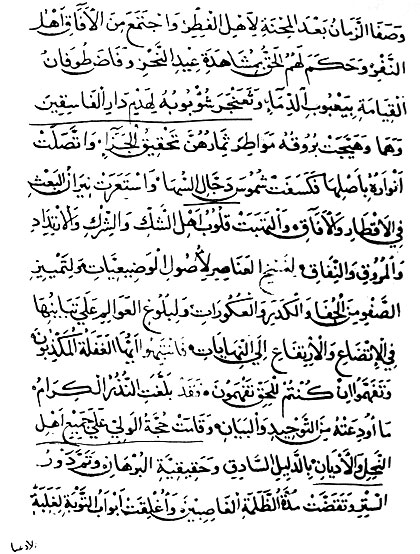 وصفا الزمان بعد المحنة لاهل الفطر واجتمع من الآفاق اهل
النفر وحكم لهم الحق بمشاهدة عيد النحر وفاض طوفان
القيامة بيعبوب الدماء وثعنجر شؤبوبه لهدم دار الفاسقين
وهما وهيجت بروقه مواطر ثمارهن تحقيق الجزاء واتصلت
انواره باصلها فكسفت شموس دجال السها واستعرت نيران البعث
في الاقطار والآفاق والتهبت قلوب اهل الشك والشرك والارتداد
والمروق والنفاق لفسخ العناصر لأصول الوضيعيات ولتمييز
الصفو من الجفا والكدر والعكورات ولبلوغ العوالم على تباينها
في الاتضاع والارتفاع الى النهايات فانتبهوا ايها الغفلة المكذبون
وتفهموا ان كنتم للحق تفهمون فقد بلغت النذر الكرام
ما اودعته من التوحيد والبيان وقامت حجة الولي على جميع اهل
النحل والأديان بالدليل السادق وحقيقية البرهان وتمرد دور
الستر وتقضت مدة الظلمة الغاصبين وأغلقت ابواب التوبة لغلبة